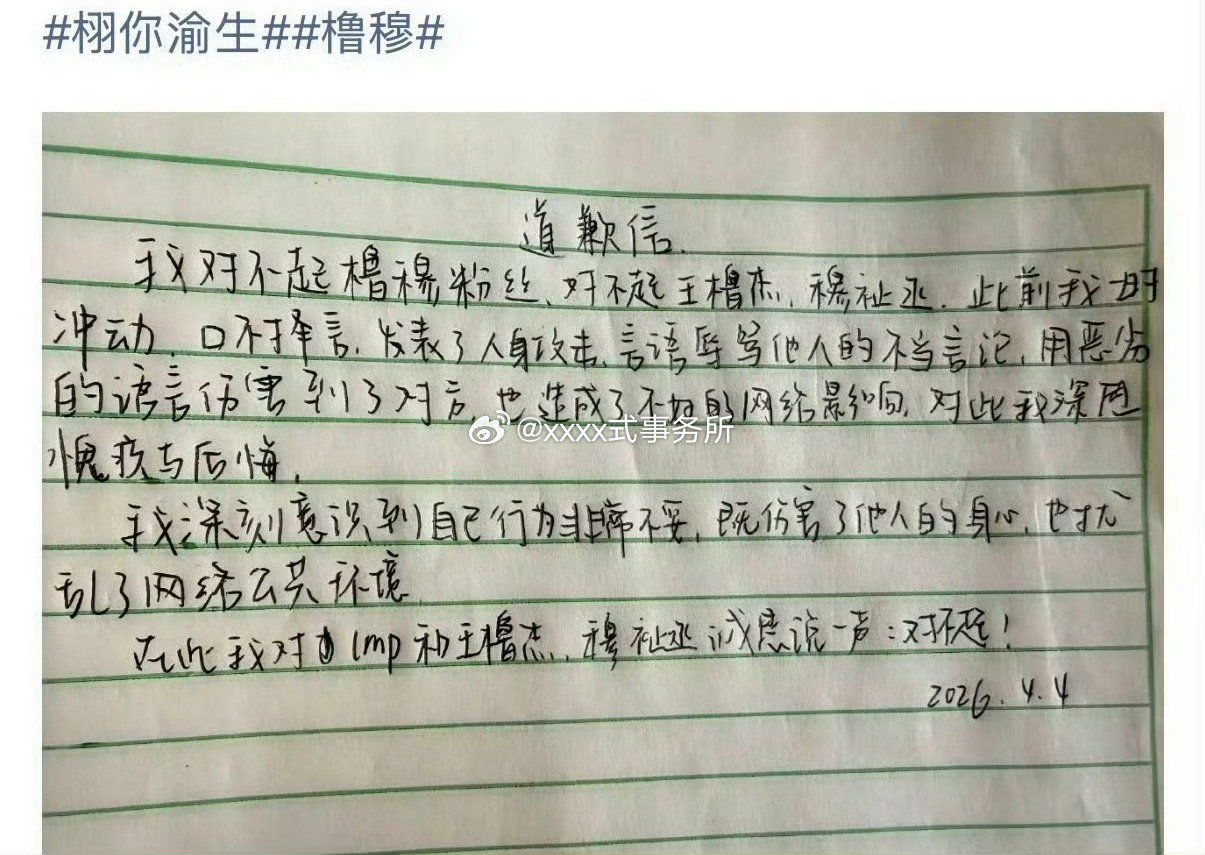 #栩你渝生##橹穆#
道歉信.
我对不起橹穆粉丝、对不起王橹杰、穆祉丞.此前我一时
冲动,口不择言,发表了人身攻击、言语辱骂他人的不当言论,用恶劣
的语言伤害到了对方,也造成了不好的网络影响,对此我深感
@xxxx式事务所
愧疚与后悔.
我深刻意识到自己行为非常不妥,既伤害了他人的身心,也扰
乱了网络公共环境.
在此我对 lmp和王橹杰、穆祉丞诚恳说一声:对不起!
2026.4.4